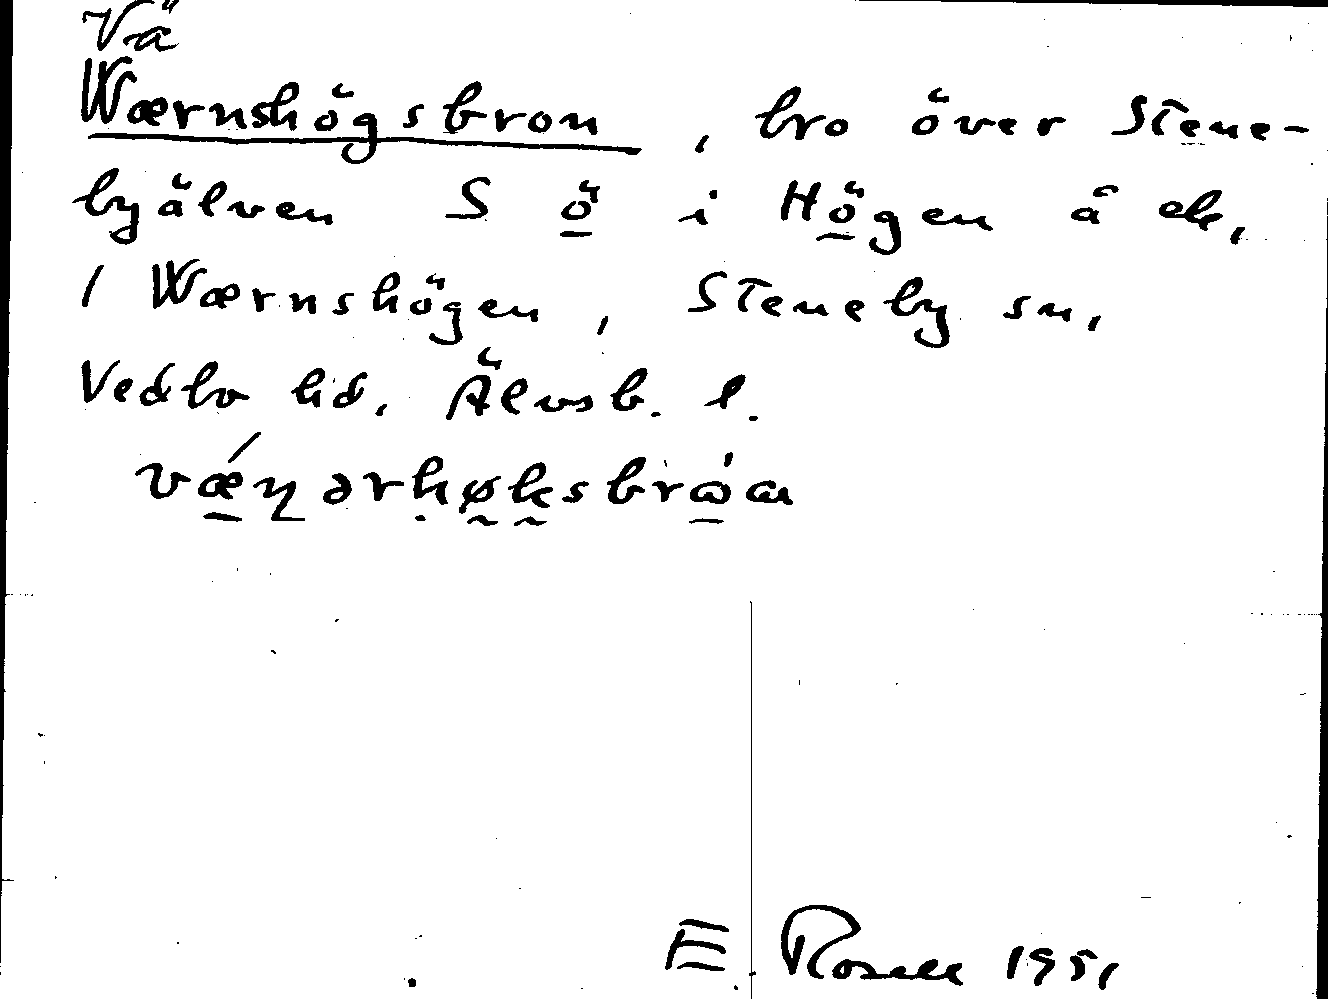 Vä
Wærnshögsbron, bro över Stene-
byälven S ö i Högen å ek,
/ Wærnshögen, Steneby sn,
Vedbo hd, Älvsb. l.
E. Rosell 1951